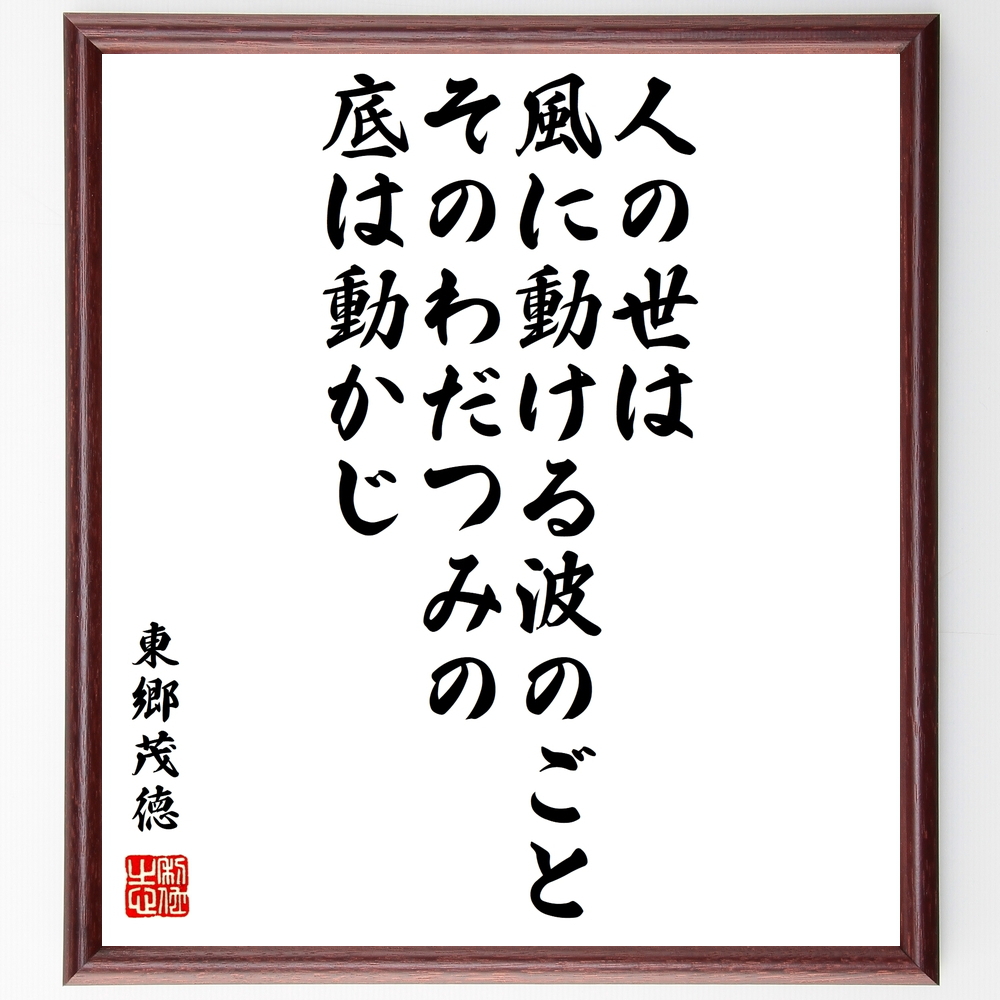 人の世は
風に動ける波のごと
そのわだつみの
底は動かじ
東郷茂徳